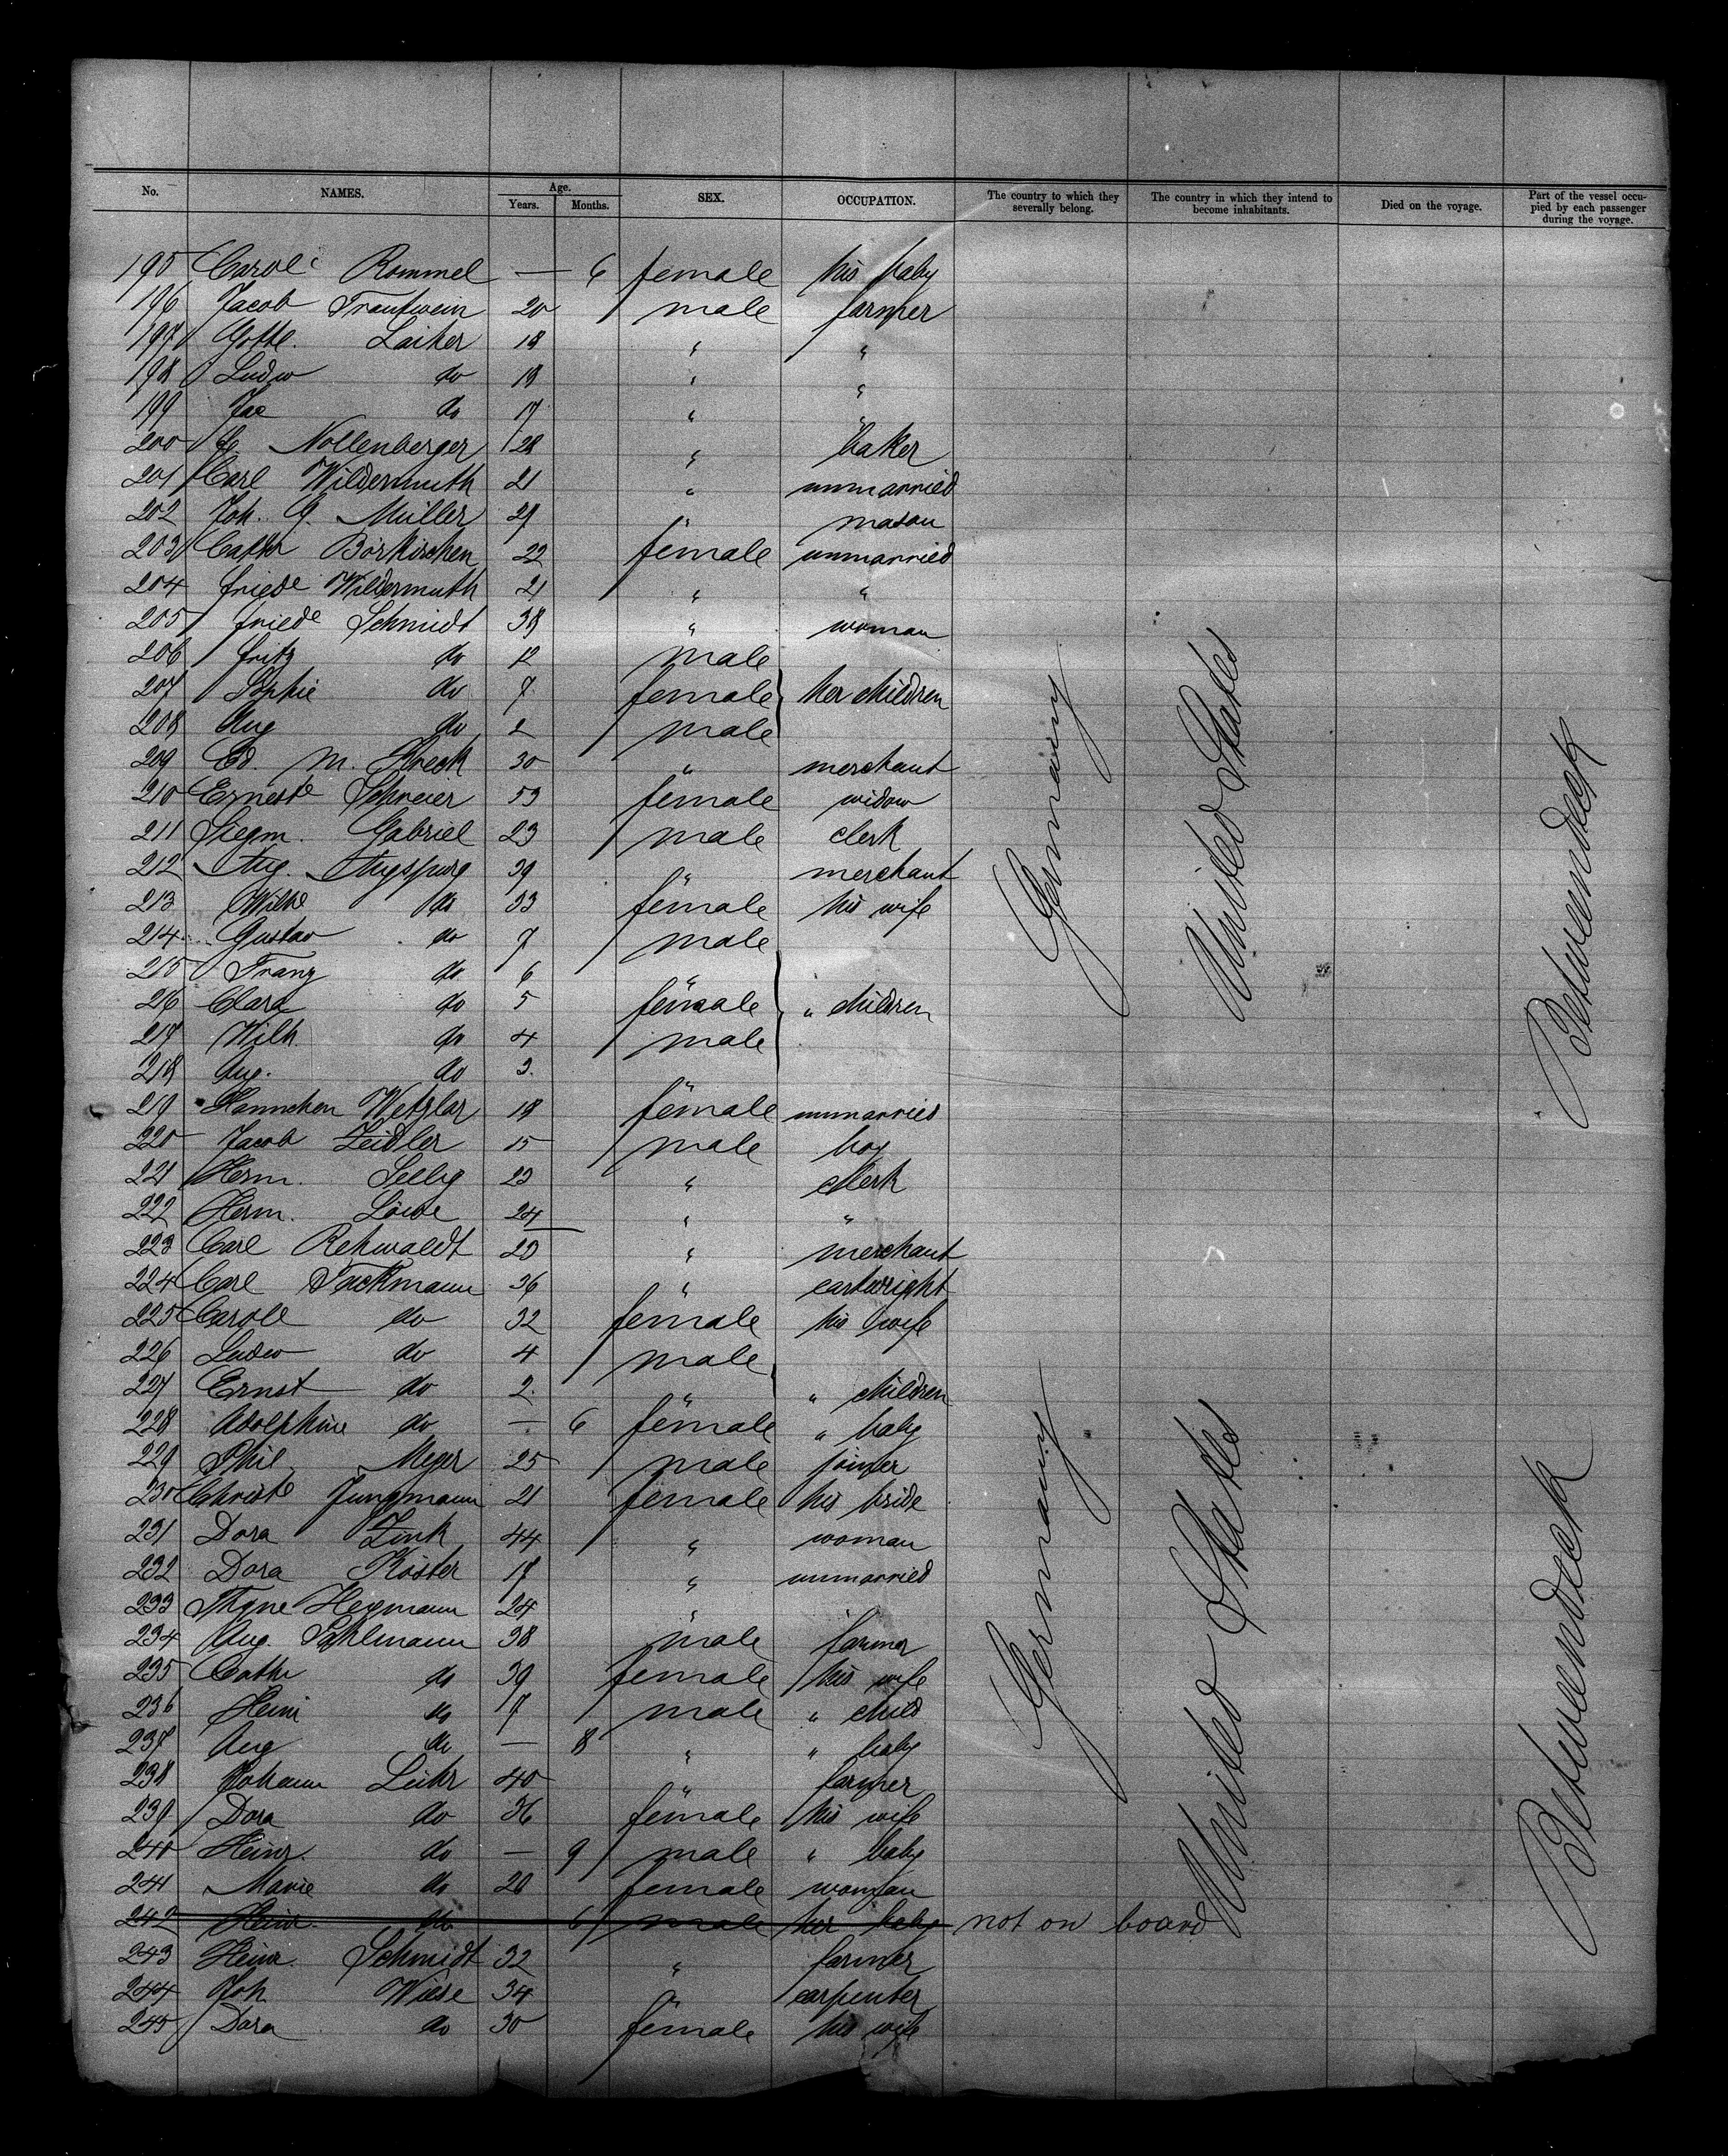 No. NAMES. Age. Years. Months. SEX. OCCUPATION. The country to which they severally belong. The country in which they intend to become inhabitants. Died on the voyage. Part of the vessel occupied by each passenger during the voyage.
195 Carole Rommel — 6 female his baby
196 Jacob Trautwein 20 male farmer
197 Gottl. Laiher 18 " "
198 Ludw do 19 " "
199 Jac do 17 " "
200 C. Nollenberger 28 " baker
201 Carl Wildermuth 21 " unmarried
202 Joh. G. Müller 27 " mason
203 Cathi Börkirchen 22 female unmarried
204 Friede Wildermuth 21 " "
205 Friede Schmidt 38 " woman
206 Fritz do 12 male
207 Sophie do 7 female her children
208 Aug do 2 male
209 Ed. M. Kreck 30 " merchant
210 Erneste Schreier 53 female widow
211 Siegm. Gabriel 23 male clerk
212 Aug. Augspurg 39 " merchant
213 Wilhe do 33 female his wife
214 Gustav do 7 male
215 Franz do 6 "
216 Clara do 5 female " children
217 Wilh. do 4 male
218 Aug. do 3 "
219 Hannchen Wetzlar 18 female unmarried
220 Jacob Zeidler 15 male boy
221 Herm. Sellig 23 " clerk
222 Herm. Löwe 24 " "
223 Carl Rehwaldt 23 " merchant
224 Carl Tackmann 36 " cartwright
225 Carole do 32 female his wife
226 Ludw do 4 male
227 Ernst do 2 " " children
228 Adolphine do — 6 female " baby
229 Phil. Meyer 25 male joiner
230 Christe Jungmann 21 female his bride
231 Dora Zink 44 " woman
232 Dora Köster 17 " unmarried
233 Thyne Hegmann 24 " "
234 Aug. Pahlmann 38 male farmer
235 Cathe do 39 female his wife
236 Heinr do 7 male " child
237 Aug do — 8 " " baby
238 Johann Lühr 40 " farmer
239 Dora do 36 female his wife
240 Heinr. do — 9 male " baby
241 Marie do 20 female woman
242 Heinr. do 6 male her baby not on board
243 Heinr. Schmidt 32 " farmer
244 Joh Wiese 34 " carpenter
245 Dora do 30 female his wife
Germany
United States
Betweendeck
Germany
United States
Betweendeck